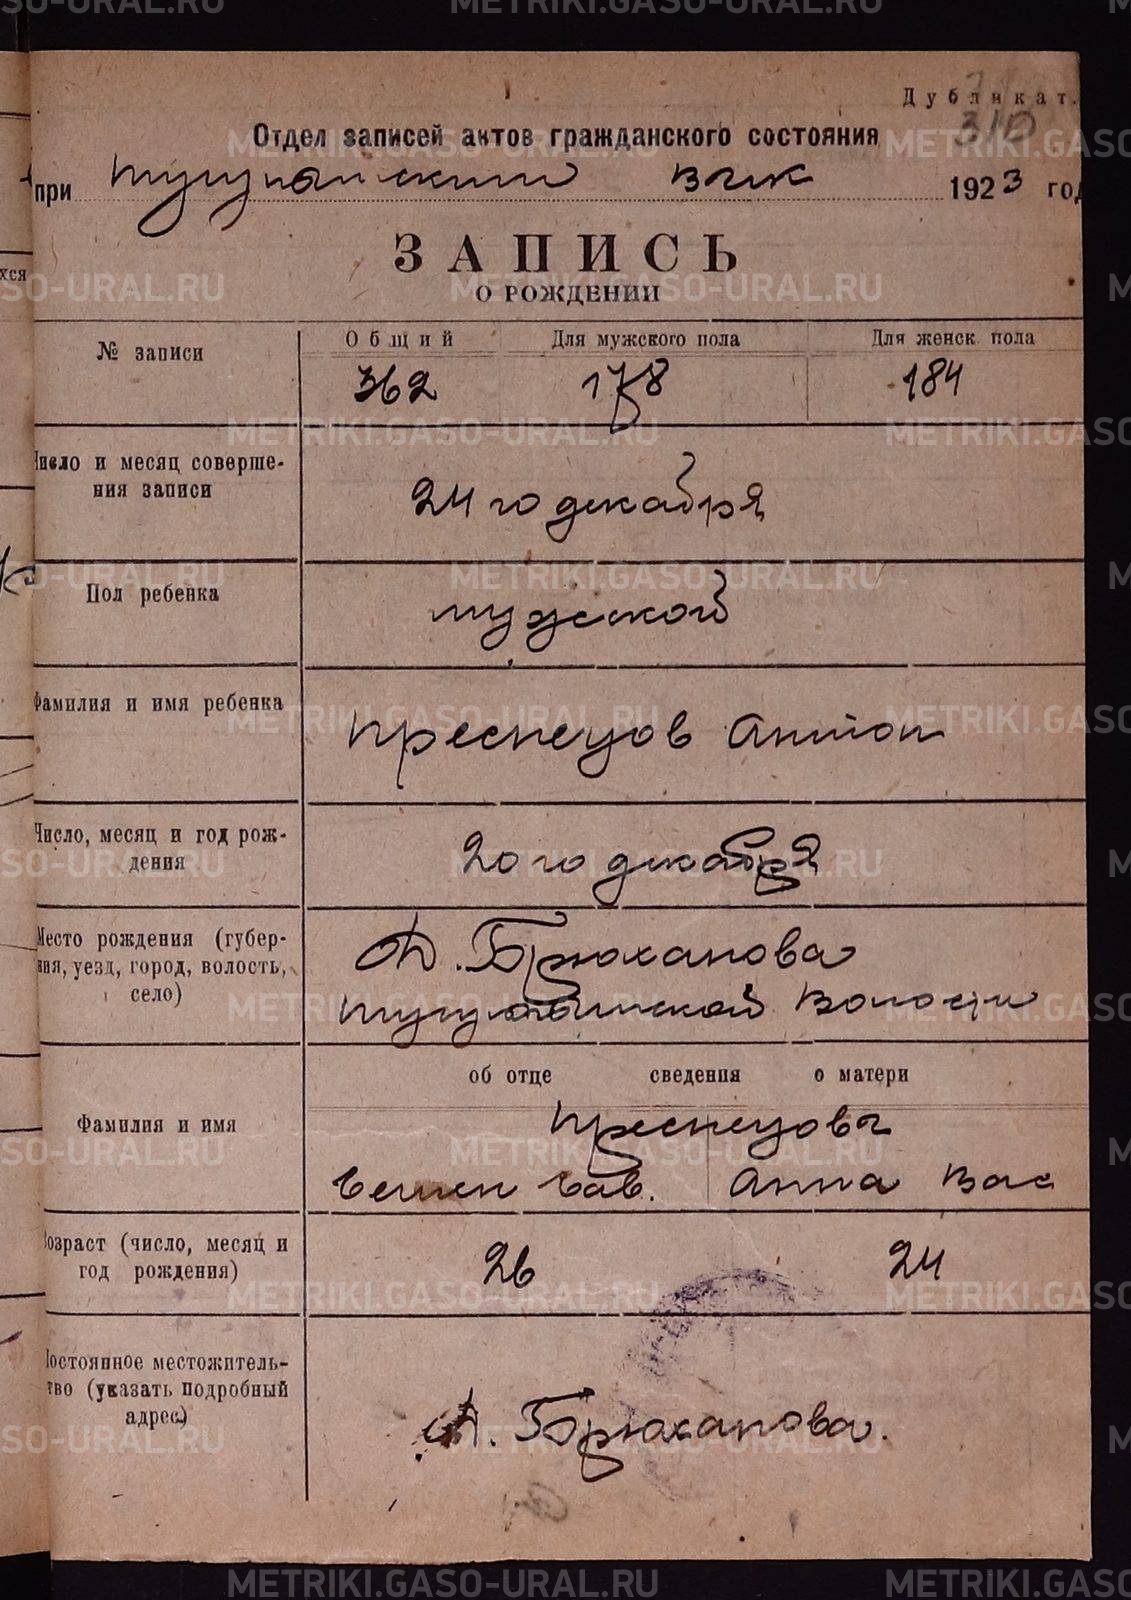 Дубликат.
310
Отдел записей актов гражданского состояния
при Тугулымским Вик 1923 год
ЗАПИСЬ
О РОЖДЕНИИ
№ записи
Общий Для мужского пола Для женск. пола
362 178 184
Число и месяц соверше-
ния записи
24 го декабря
Пол ребенка
мужской
Фамилия и имя ребенка
Преснецов Антон
Число, месяц и год рож-
дения
20 го декабря
Место рождения (губер-
ния, уезд, город, волость,
село)
Д. Брюханова
Тугулымской Волости
об отце сведения о матери
Фамилия и имя
Преснецовы
Семен Сав. Анна Вас
Возраст (число, месяц и
год рождения)
26 24
Постоянное местожитель-
тво (указать подробный
адрес)
Д. Брюханова.
METRIKI.GASO-URAL.RU